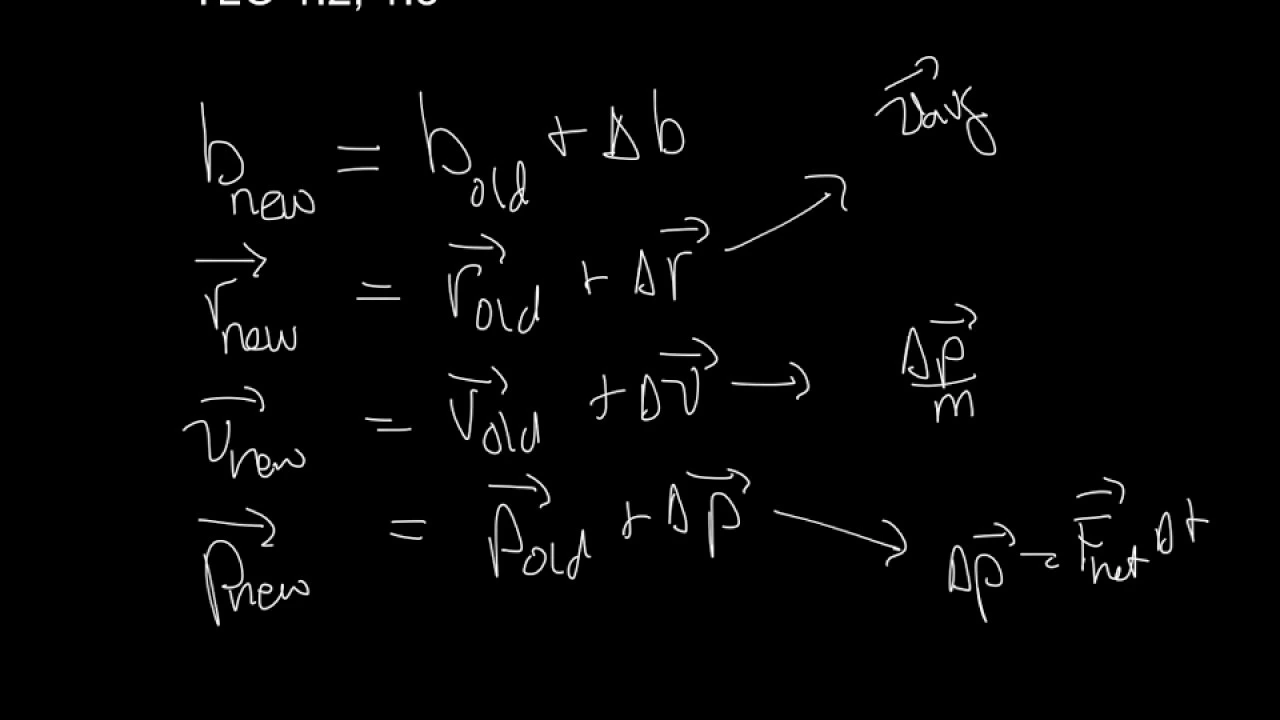 b_new = b_old + Δb
r⃗_new = r⃗_old + Δr⃗ → v⃗_avg
v⃗_new = v⃗_old + Δv⃗ → Δp⃗/m
p⃗_new = p⃗_old + Δp⃗ → Δp⃗ = F⃗_net Δt